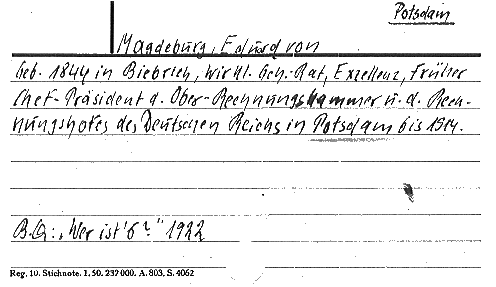 Potsdam
Magdeburg, Eduard von
Geb. 1844 in Biebrich, Wirkl. Geh.-Rat, Exzellenz, Früher
Chef-Präsident d. Ober-Rechnungskammer u. d. Rech-
nungshofes des Deutschen Reichs in Potsdam bis 1914.
B.Q.: „Wer ist's?" 1922
Reg. 10. Stichnote. 1. 50. 232 000. A. 803, S. 4062